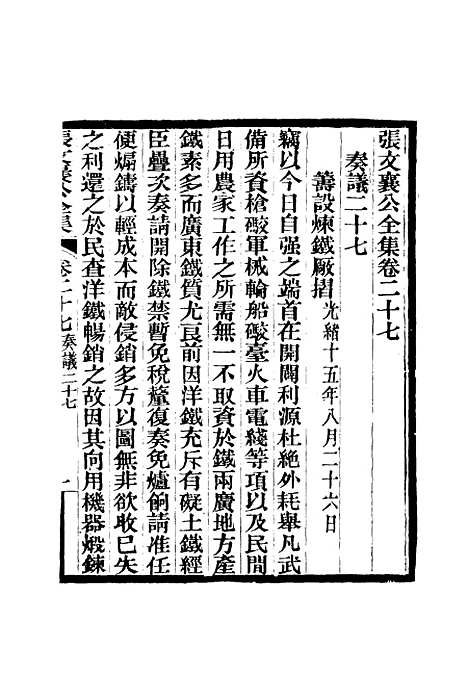 張文襄公全集卷二十七
奏議二十七
籌設煉鐵厰摺 光緒十五年八月二十六日
竊以今日自强之端首在開闢利源杜絶外耗舉凡武
備所資槍礮軍械輪船礮臺火車電綫等項以及民間
日用農家工作之所需無一不取資於鐵兩廣地方產
鐵素多而廣東鐵質尤良前因洋鐵充斥有礙土鐵經
臣疊次奏請開除鐵禁暫免稅釐復奏免爐餉請准任
便煽鑄以輕成本而敵侵銷多方以圖無非欲收已失
之利還之於民查洋鐵暢銷之故因其向用機器煅鍊
張文襄公全集 卷二十七 奏議二十七 一